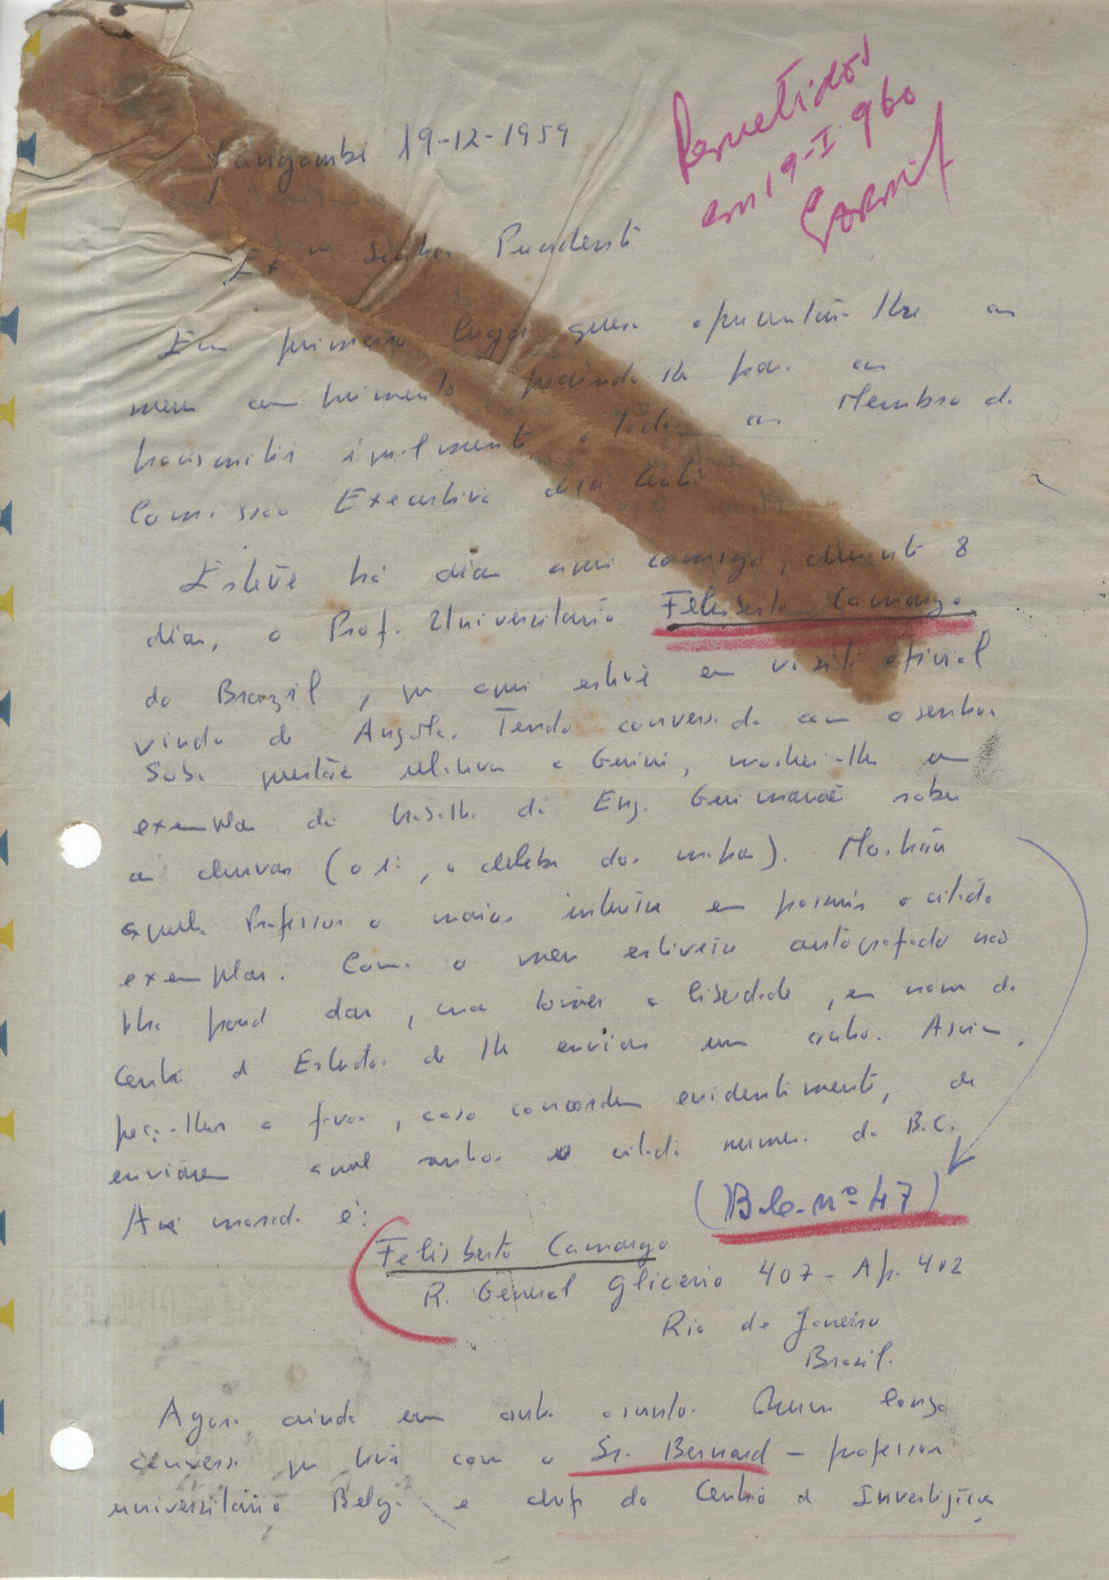 Yangambi 19-12-1959
Remetidos
em 19-I-960
Exmo Senhor Presidente
Em primeiro lugar quero apresentar-lhe os
meus cumprimentos pedindo-lhe para os
transmitir igualmente a todos os Membros da
Comissão Executiva desse Centro
Esteve há dias aqui comigo, durante 8
dias, o Prof. Universitário Felisberto Camargo
do Brazil, que aqui esteve em visita oficial
vindo de Angola. Tendo conversado com o senhor
sobre questões relativas a Guiné, mostrei-lhe um
exemplar do trabalho do Eng. Guimarães sobre
as chuvas (o 1º, a
Mostrou
aquele Professor o maior interesse em possuir o citado
exemplar. Como o meu estivesse autografado não
lho pude dar, mas tomei a liberdade, em nome do
Centro de Estudos de lhe enviar um outro. Assim,
peço-lhes o favor, caso concordem evidentemente, de
enviarem
citado número do B.C.
(B.C. nº 47)
A morada é:
Felisberto Camargo
R. General Glicério 407 - Ap. 402
Rio de Janeiro
Brazil.
Agora ainda um outro assunto. Numa longa
conversa que tive com o Sr. Bernard - professor
universitário Belga e chefe do Centro de Investigação